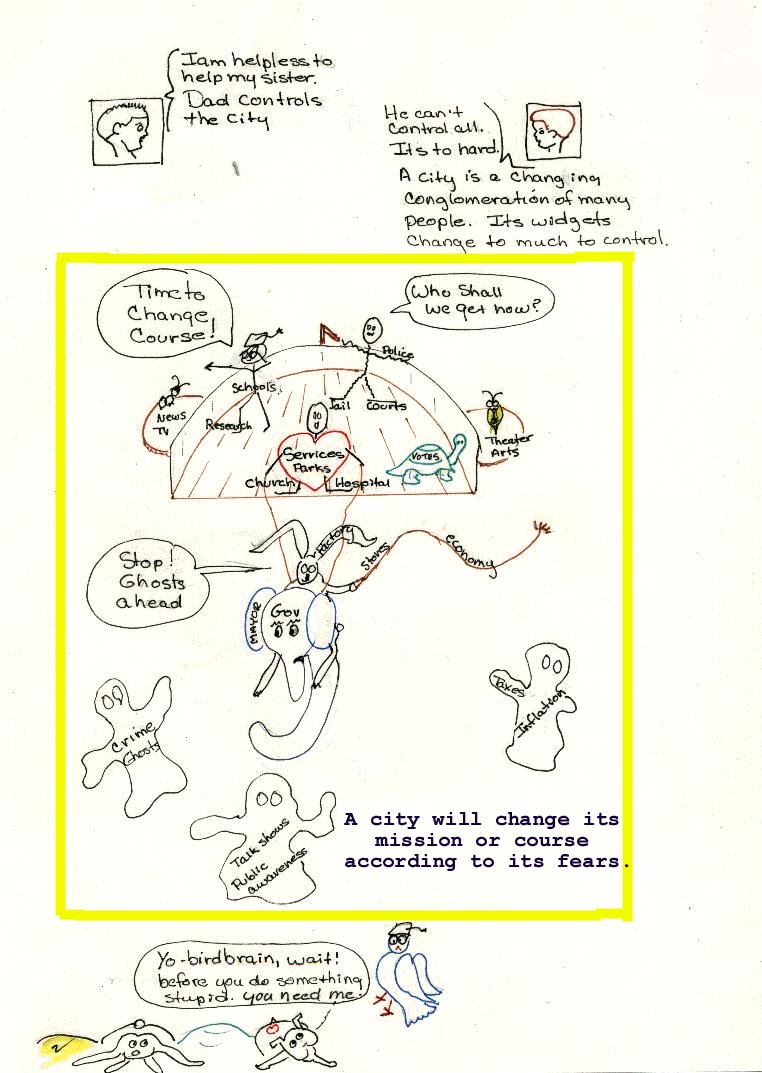 Iam helpless to
help my sister.
Dad controls
the City
He can't
control all.
Its to hard.
A city is a changing
conglomeration of many
people. Its widgets
change to much to control.
Time to
Change
Course!
Who Shall
we get now?
Police
Schools
Jail
Courts
News
TV
Research
Theater
Arts
Services
Parks
VOTES
Church
Hospital
Factory
Stores
economy
Stop!
Ghosts
ahead
MAYOR
Gov
Taxes
Inflation
Crime
Ghosts
Talk shows
Public
awareness
A city will change its
mission or course
according to its fears.
Yo-birdbrain, wait!
before you do something
stupid. you need me.
2